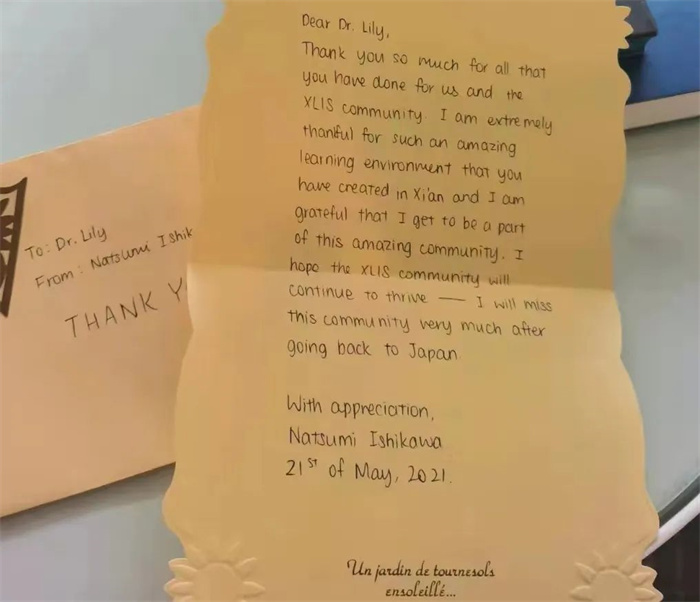 Dear Dr. Lily,
Thank you so much for all that
you have done for us and the
XLIS community. I am extremely
thankful for such an amazing
learning environment that you
have created in Xi'an and I am
grateful that I get to be a part
of this amazing community. I
hope the XLIS community will
continue to thrive — I will miss
this community very much after
going back to Japan.
With appreciation,
Natsumi Ishikawa
21st of May, 2021.
Un jardin de tournesols
ensoleillé...
To: Dr. Lily
From: Natsumi Ishik
THANK Y